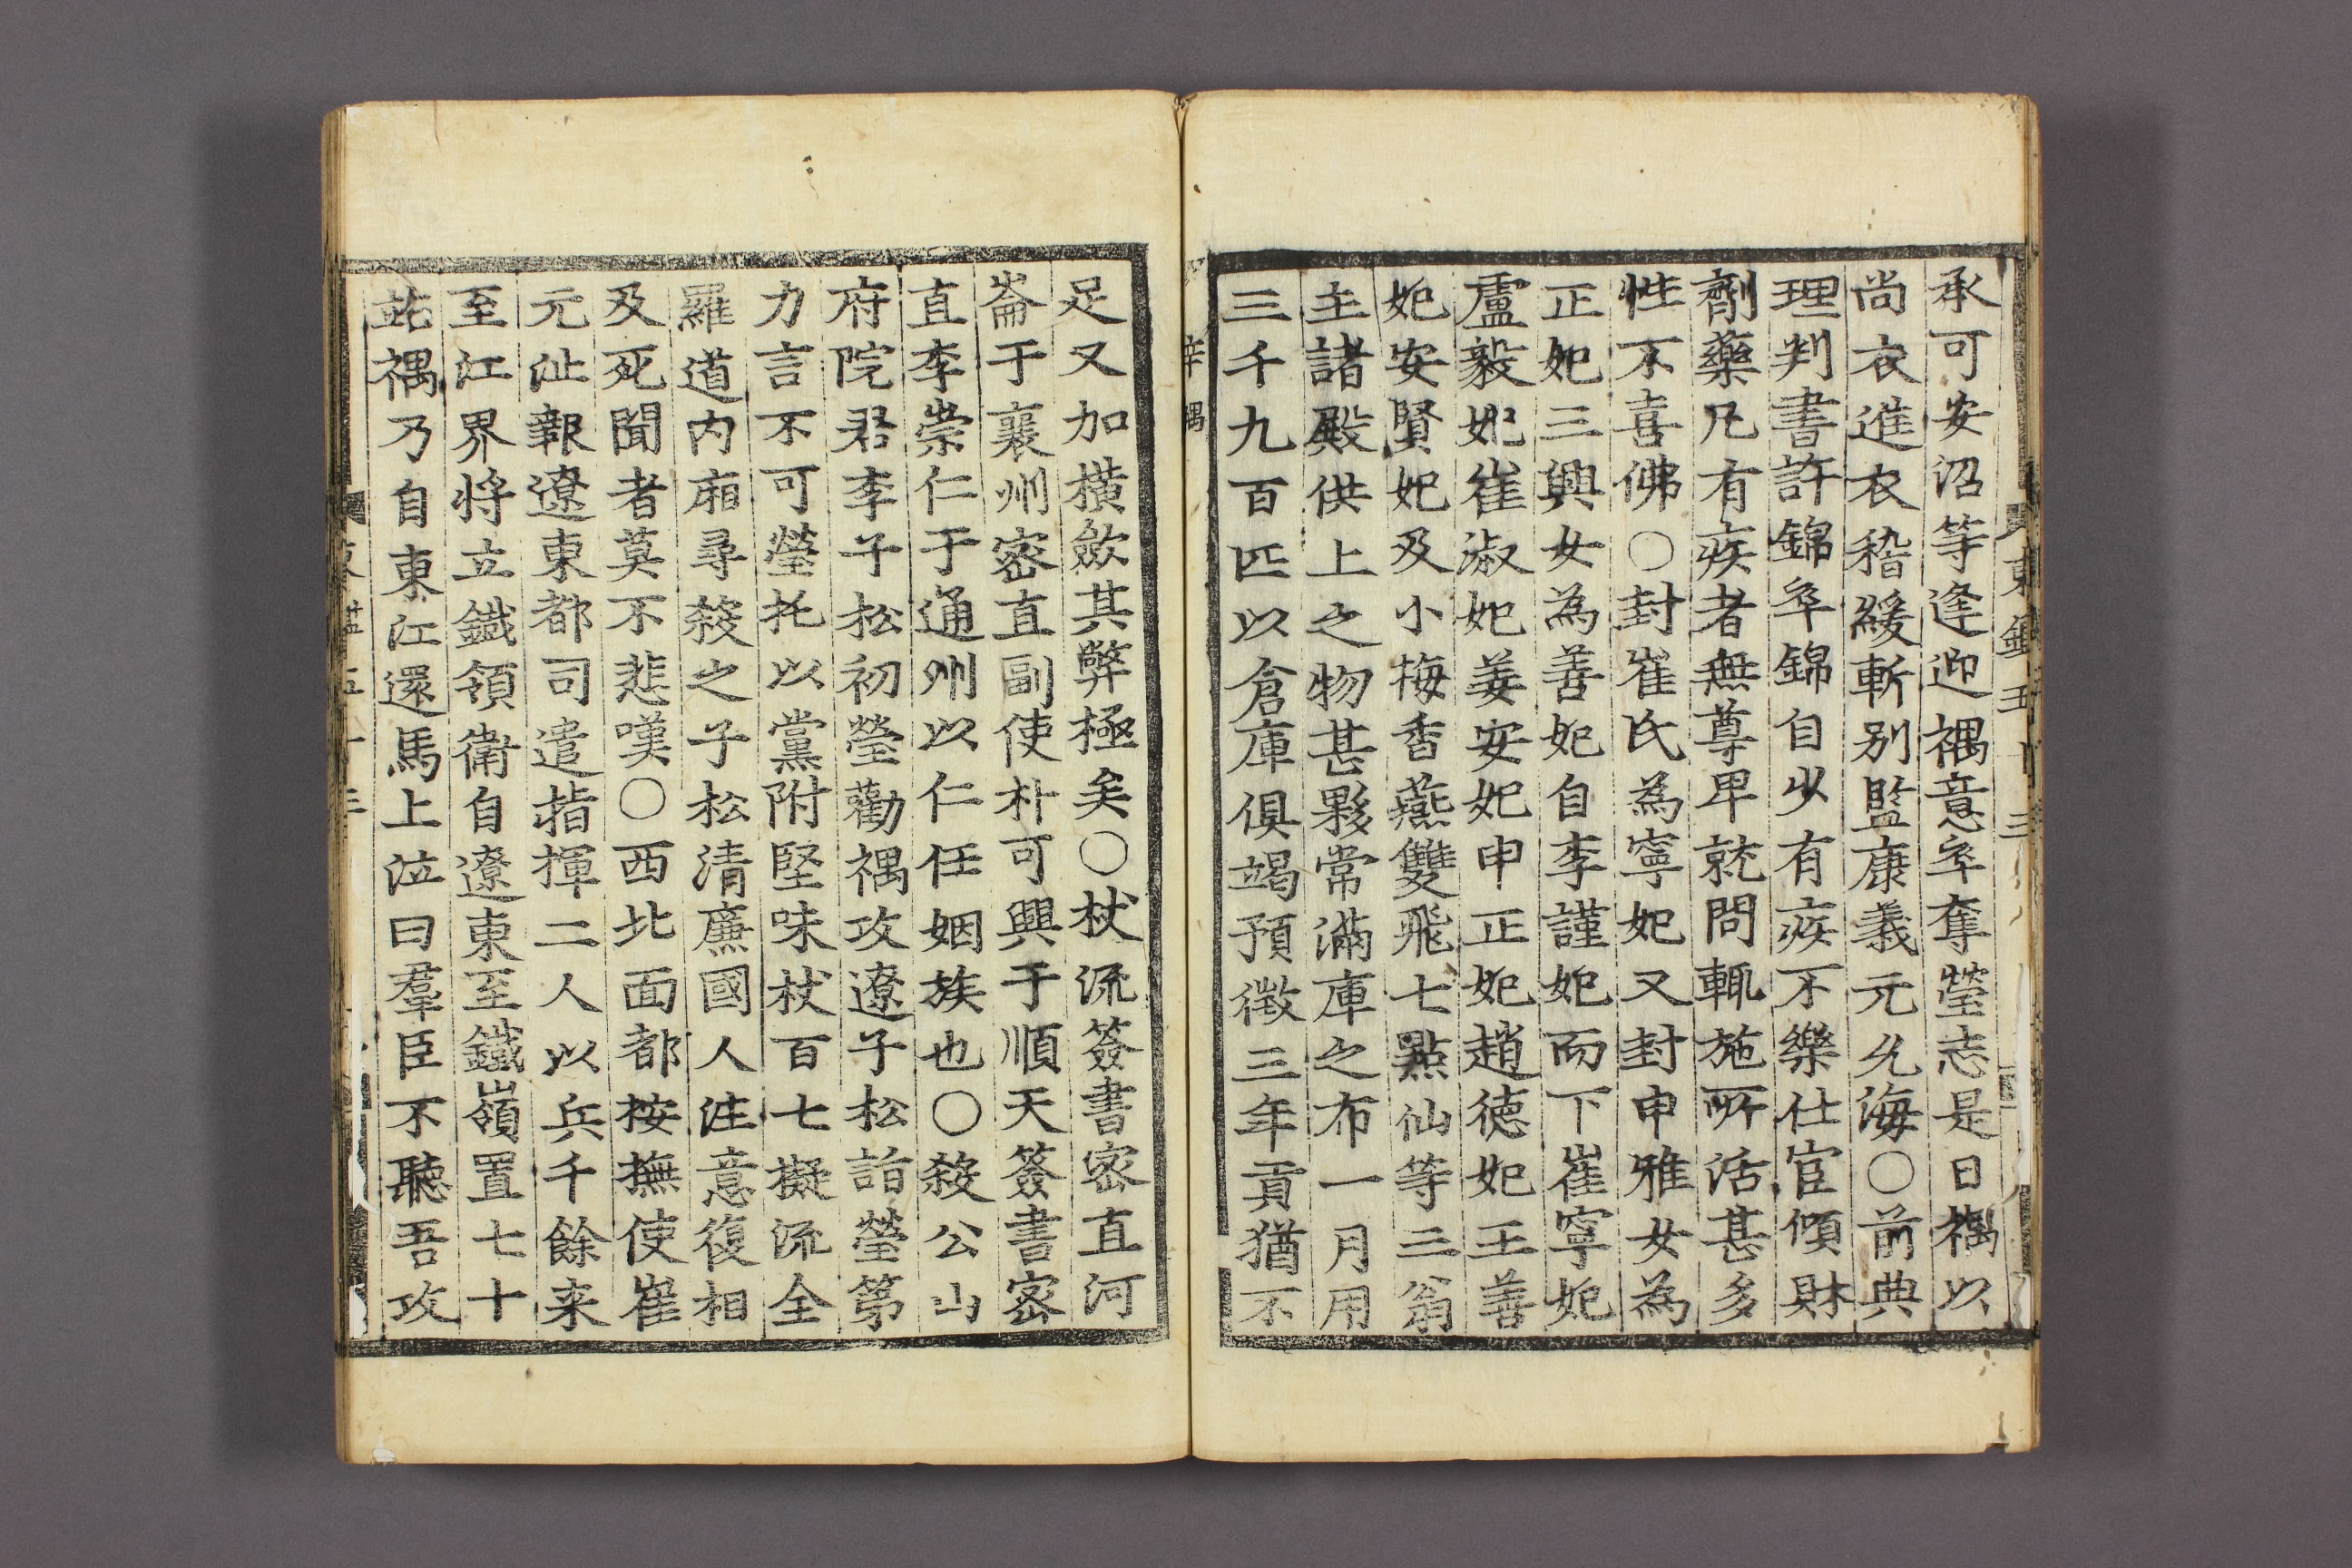 東鑑五十三
承可安沼等逢迎禑意卒奪瑩志是日禑以
尚衣進衣稽緩斬別監康義元允海○前典
理判書許錦卒錦自少有疾不樂仕宦傾財
劑藥凡有疾者無尊卑就問輒施所活甚多
性不喜佛○封崔氏為寧妃又封申雅女為
正妃三興女為善妃自李謹妃而下崔寧妃
盧毅妃崔淑妃姜安妃申正妃趙德妃王善
妃安賢妃及小梅香燕雙飛七點仙等三翁
主諸殿供上之物甚夥常滿庫之布一月用
三千九百匹以倉庫俱竭預徵三年貢猶不
辛禑
足又加橫斂其弊極矣○杖流簽書密直河
崙于襄州密直副使朴可興于順天簽書密
直李崇仁于通州以仁任姻族也○殺公山
府院君李子松初瑩勸禑攻遼子松詣瑩第
力言不可瑩托以黨附堅味杖百七擬流全
羅道内廂尋殺之子松清廉國人注意復相
及死聞者莫不悲嘆○西北面都按撫使崔
元沚報遼東都司遣指揮二人以兵千餘来
至江界将立鐵領衛自遼東至鐵嶺置七十
站禑乃自東江還馬上泣曰羣臣不聽吾攻